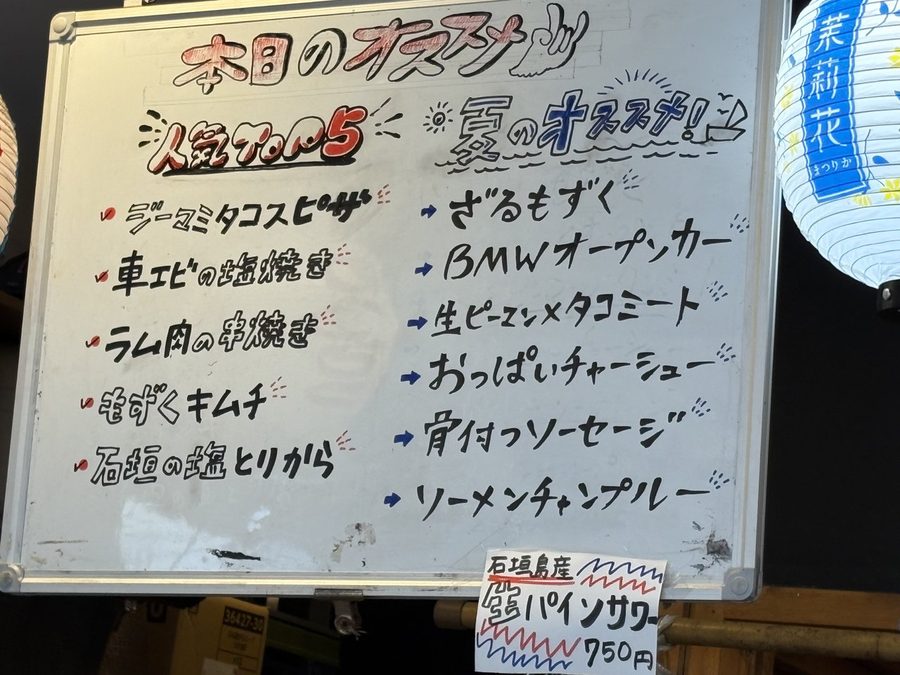 本日のオススメ
人気TOP5
ジーマミタコスピザ
車エビの塩焼き
ラム肉の串焼き
もずくキムチ
石垣の塩とりから
夏のオススメ!
ざるもずく
BMWオープンカー
生ピーマン×タコミート
おっぱいチャーシュー
骨付つソーセージ
ソーメンチャンプルー
石垣島産
パインサワー
750円
茉莉花
まつりか
36427-30